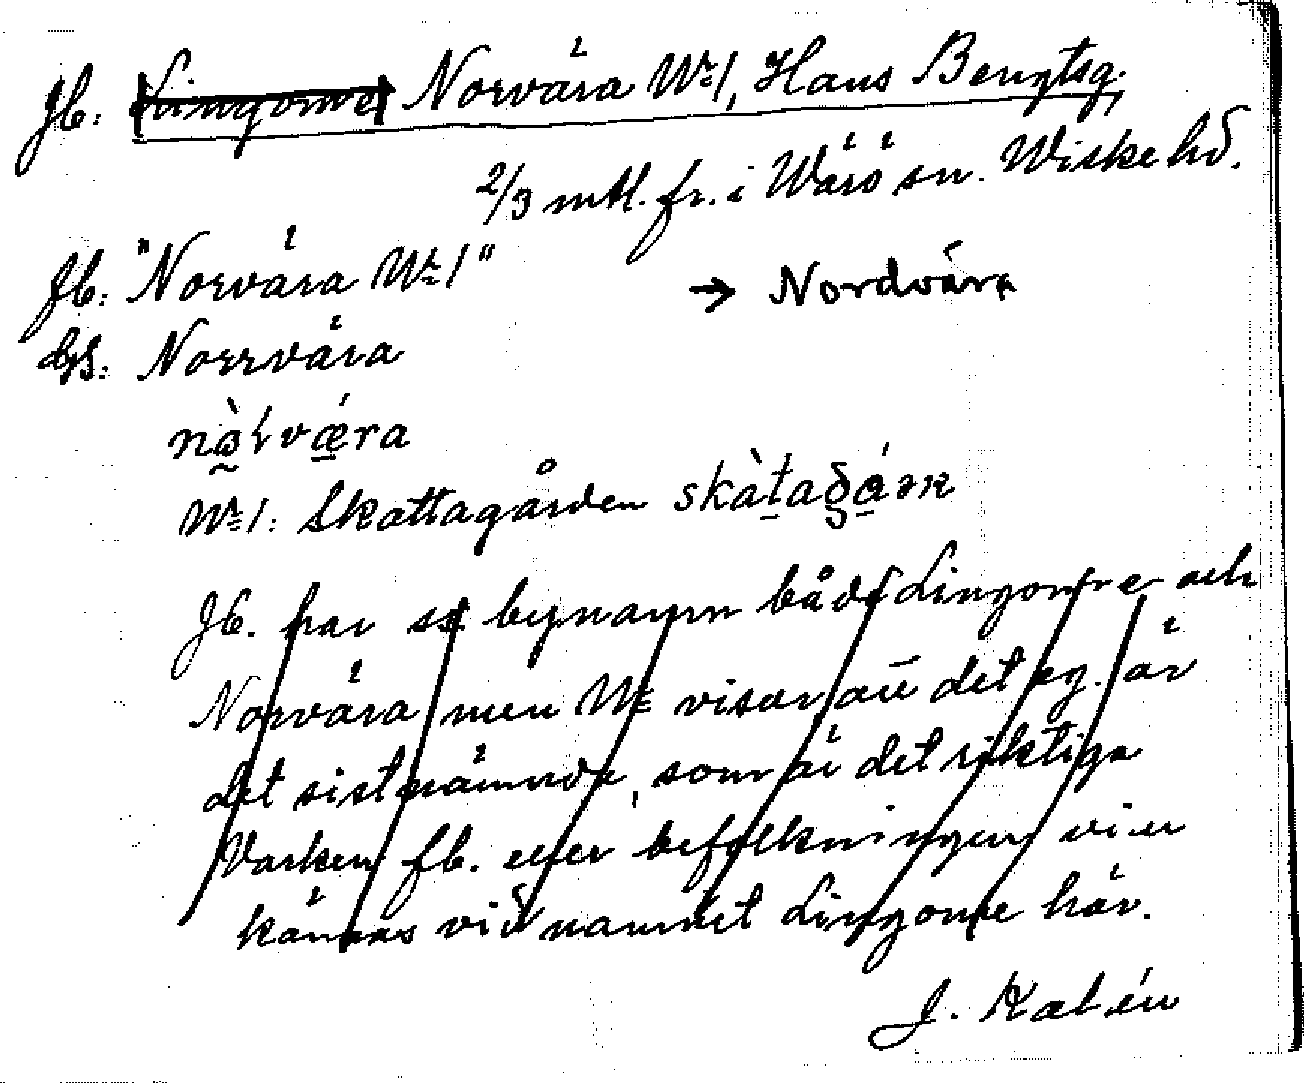 Jb. Lingomme Norvära Nr 1, Hans Bengtsg.
2/3 mtl. fr. i Värö sn. Wiske hd.
fb: "Norvära Nr 1"
GS: Norrvära → Nordvära
nò̰ɩ́vǽ̱ra
Nr 1: Skattagården skàṯag̱á̱rn
Jb. har som bynamn både Lingomme och
Norvära men Nr visar att det eg. är
det sistnämnda, som är det riktiga
Varken fb. eller befolkningen vill
kännas vid namnet Lingomme här.
J. Kalén